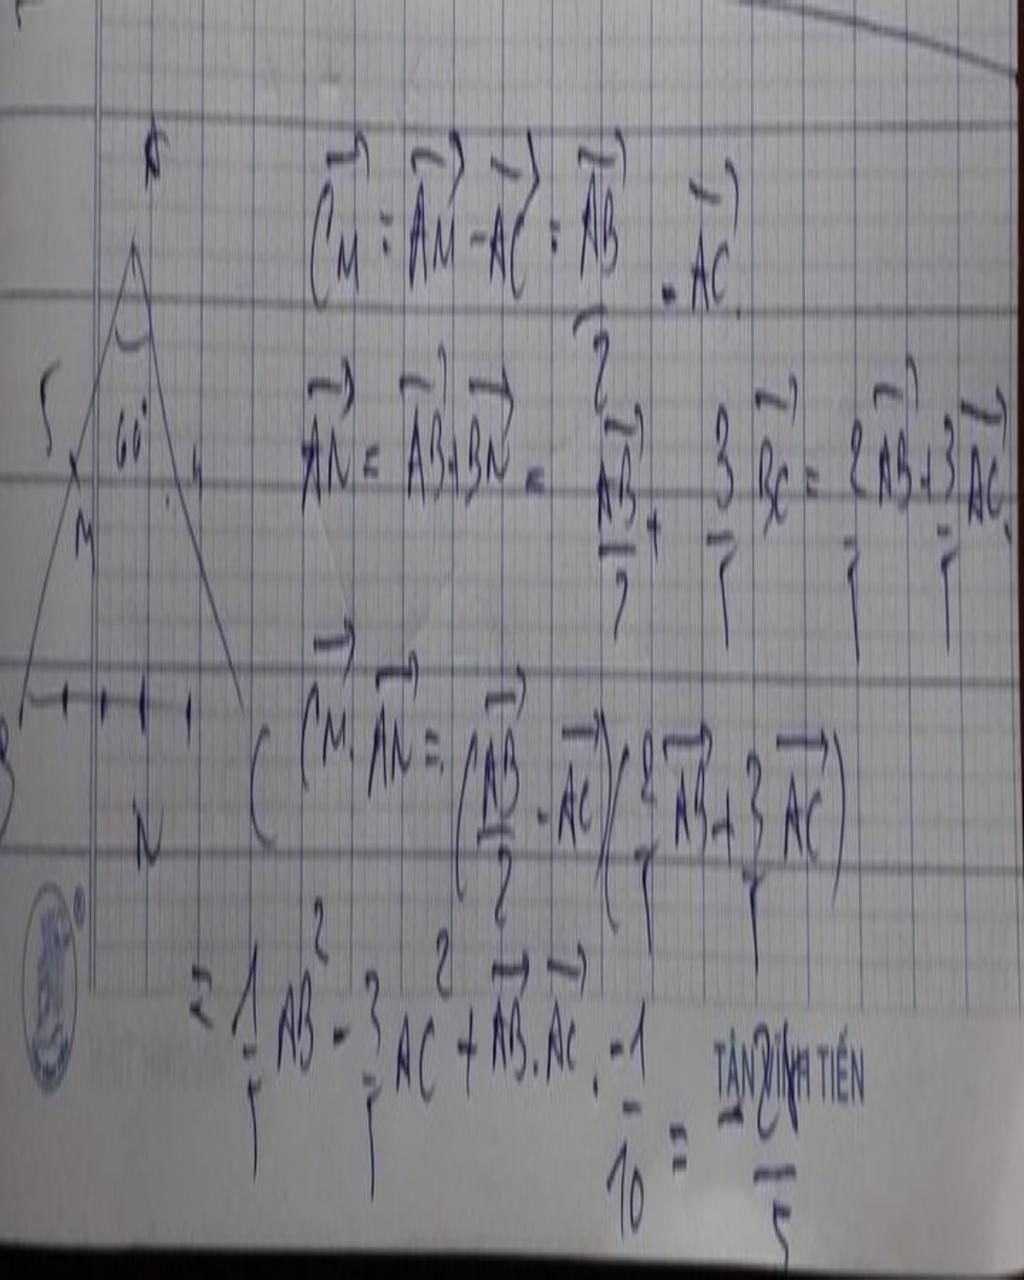 A
5
60°
4
M
B
C
N
CM = AM - AC = AB/2 - AC
AN = AB + BN = AB/2 + 3/5 BC = 2/5 AB + 3/5 AC
CM . AN = (AB/2 - AC)(2/5 AB + 3/5 AC)
= 1/5 AB² - 3/5 AC² + AB . AC . -1/10 =
TÂN VĨNH TIẾN
®